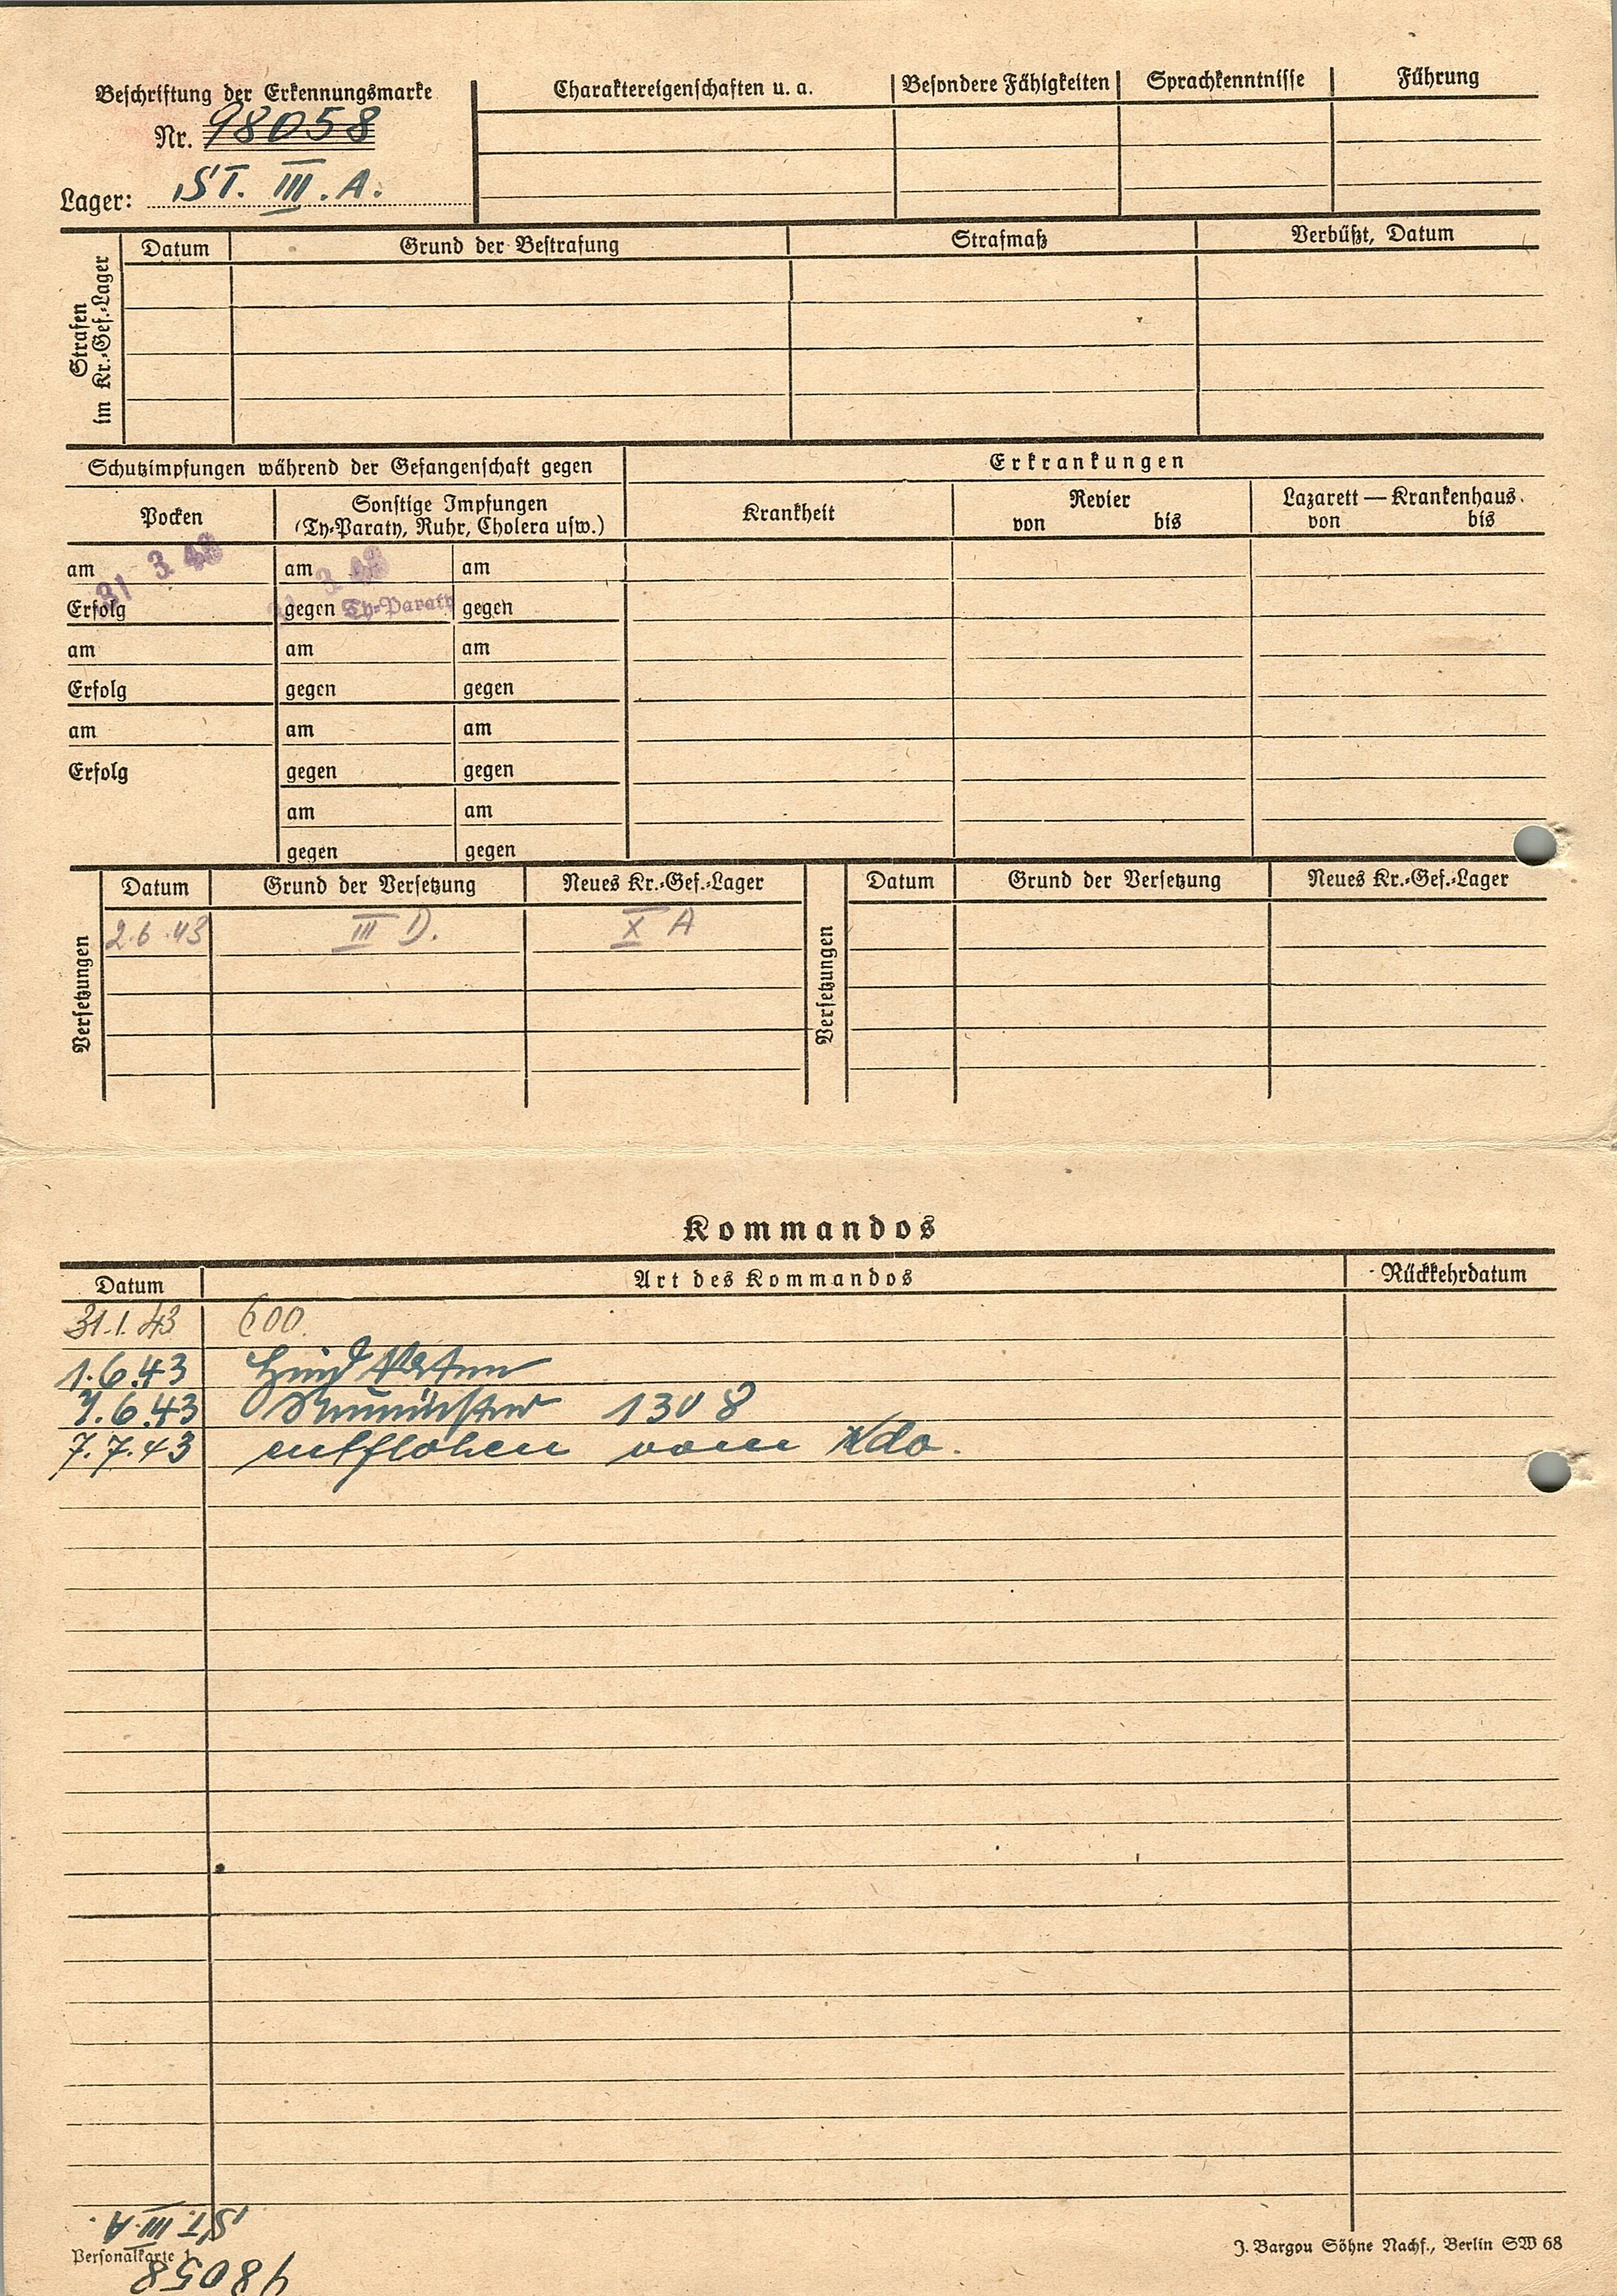 Beschriftung der Erkennungsmarke
Nr. 98058
Lager: ST. III. A.
Charaktereigenschaften u. a. Besondere Fähigkeiten Sprachkenntnisse Führung
Strafen im Kr.-Gef.-Lager
Datum Grund der Bestrafung Strafmaß Verbüßt, Datum
Schutzimpfungen während der Gefangenschaft gegen Erkrankungen
Pocken Sonstige Impfungen (Ty-Paraty, Ruhr, Cholera usw.) Krankheit Revier von bis Lazarett — Krankenhaus von bis
am 31 3. 43 am 3. 43 am
Erfolg gegen Ty-Paraty gegen
am am am
Erfolg gegen gegen
am am am
Erfolg gegen gegen
am am
gegen gegen
Versetzungen Datum Grund der Versetzung Neues Kr.-Gef.-Lager Versetzungen Datum Grund der Versetzung Neues Kr.-Gef.-Lager
2.6.43 III D. X A
Kommandos
Datum Art des Kommandos Rückkehrdatum
31.1.43 600.
1.6.43
7.6.43 Neumünster 1308
7.7.43 entflohen vom Kdo.
ST. III. A.
98058
Personalkarte 1
J. Bargou Söhne Nachf., Berlin SW 68